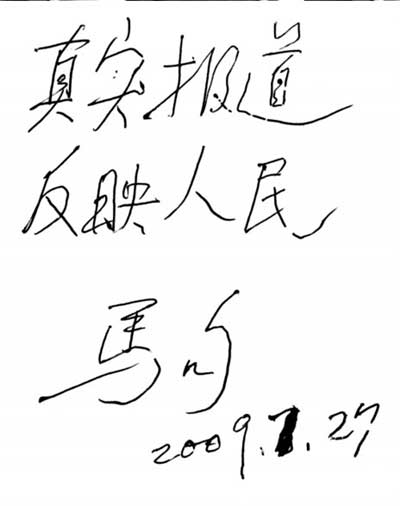 真实报道
反映人民
馬句
2009.7.27